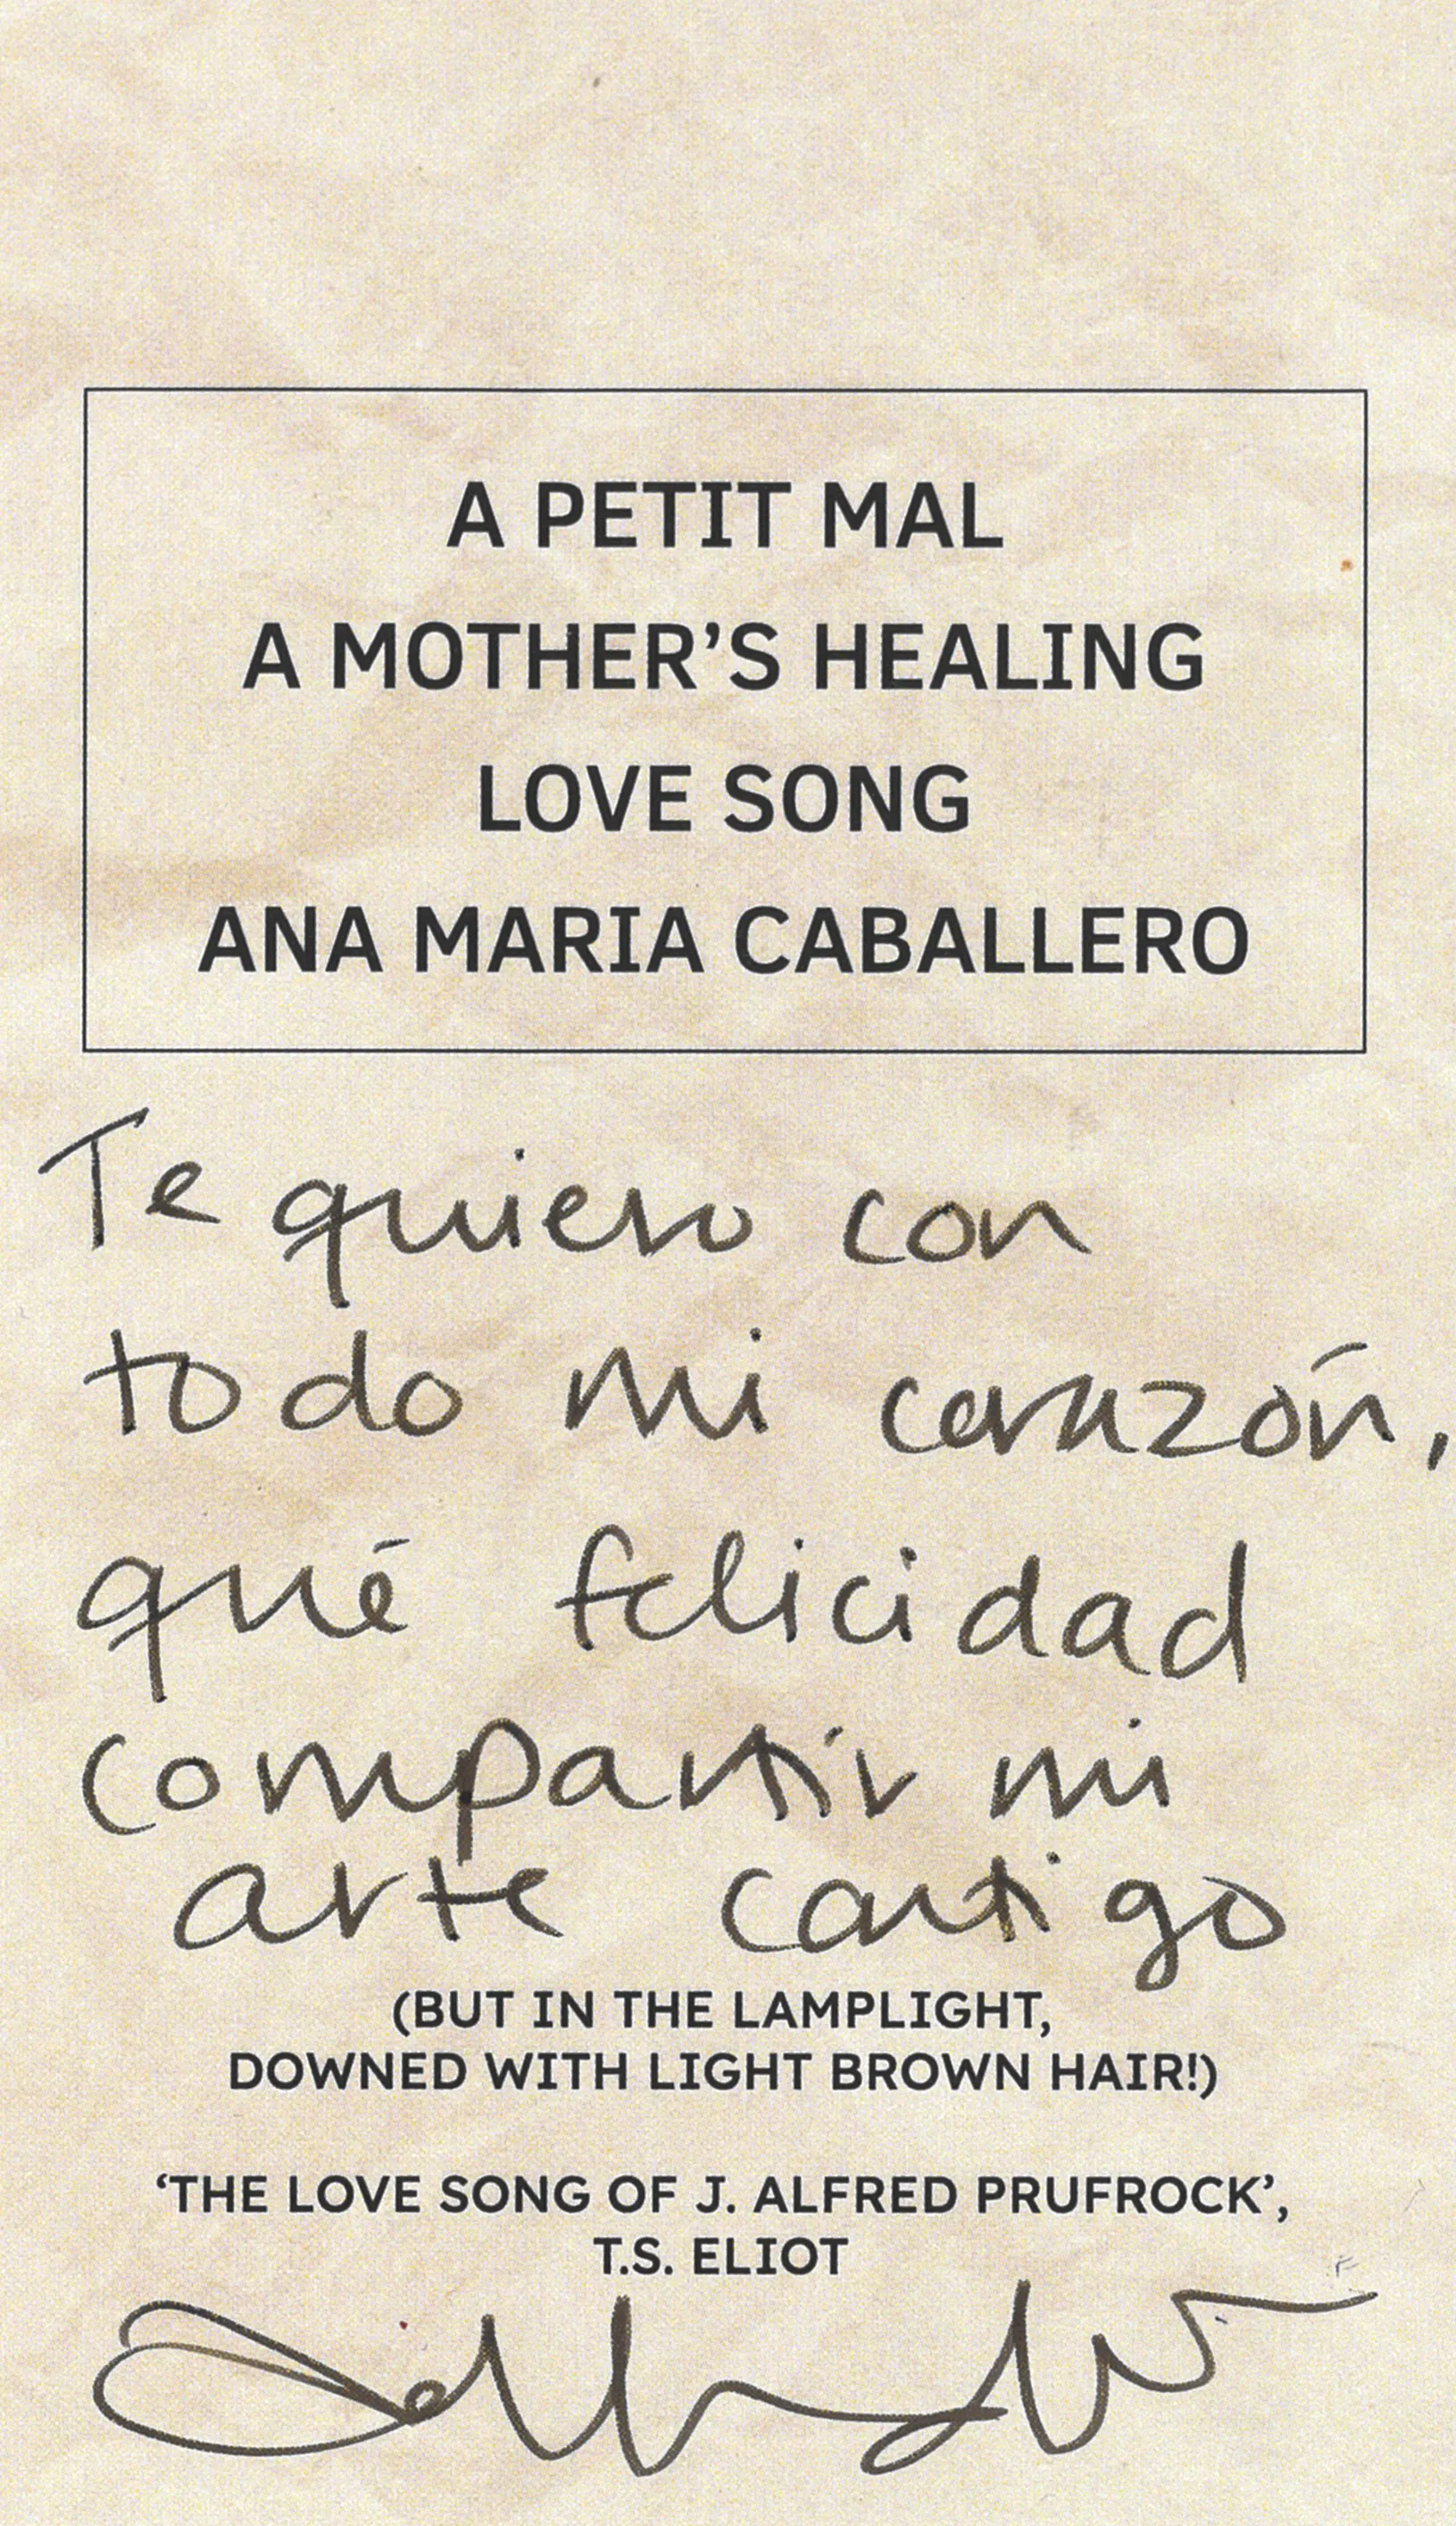 A PETIT MAL
A MOTHER’S HEALING
LOVE SONG
ANA MARIA CABALLERO
Te quiero con
todo mi corazón,
qué felicidad
compartir mi
arte contigo
(BUT IN THE LAMPLIGHT,
DOWNED WITH LIGHT BROWN HAIR!)
‘THE LOVE SONG OF J. ALFRED PRUFROCK’,
T.S. ELIOT